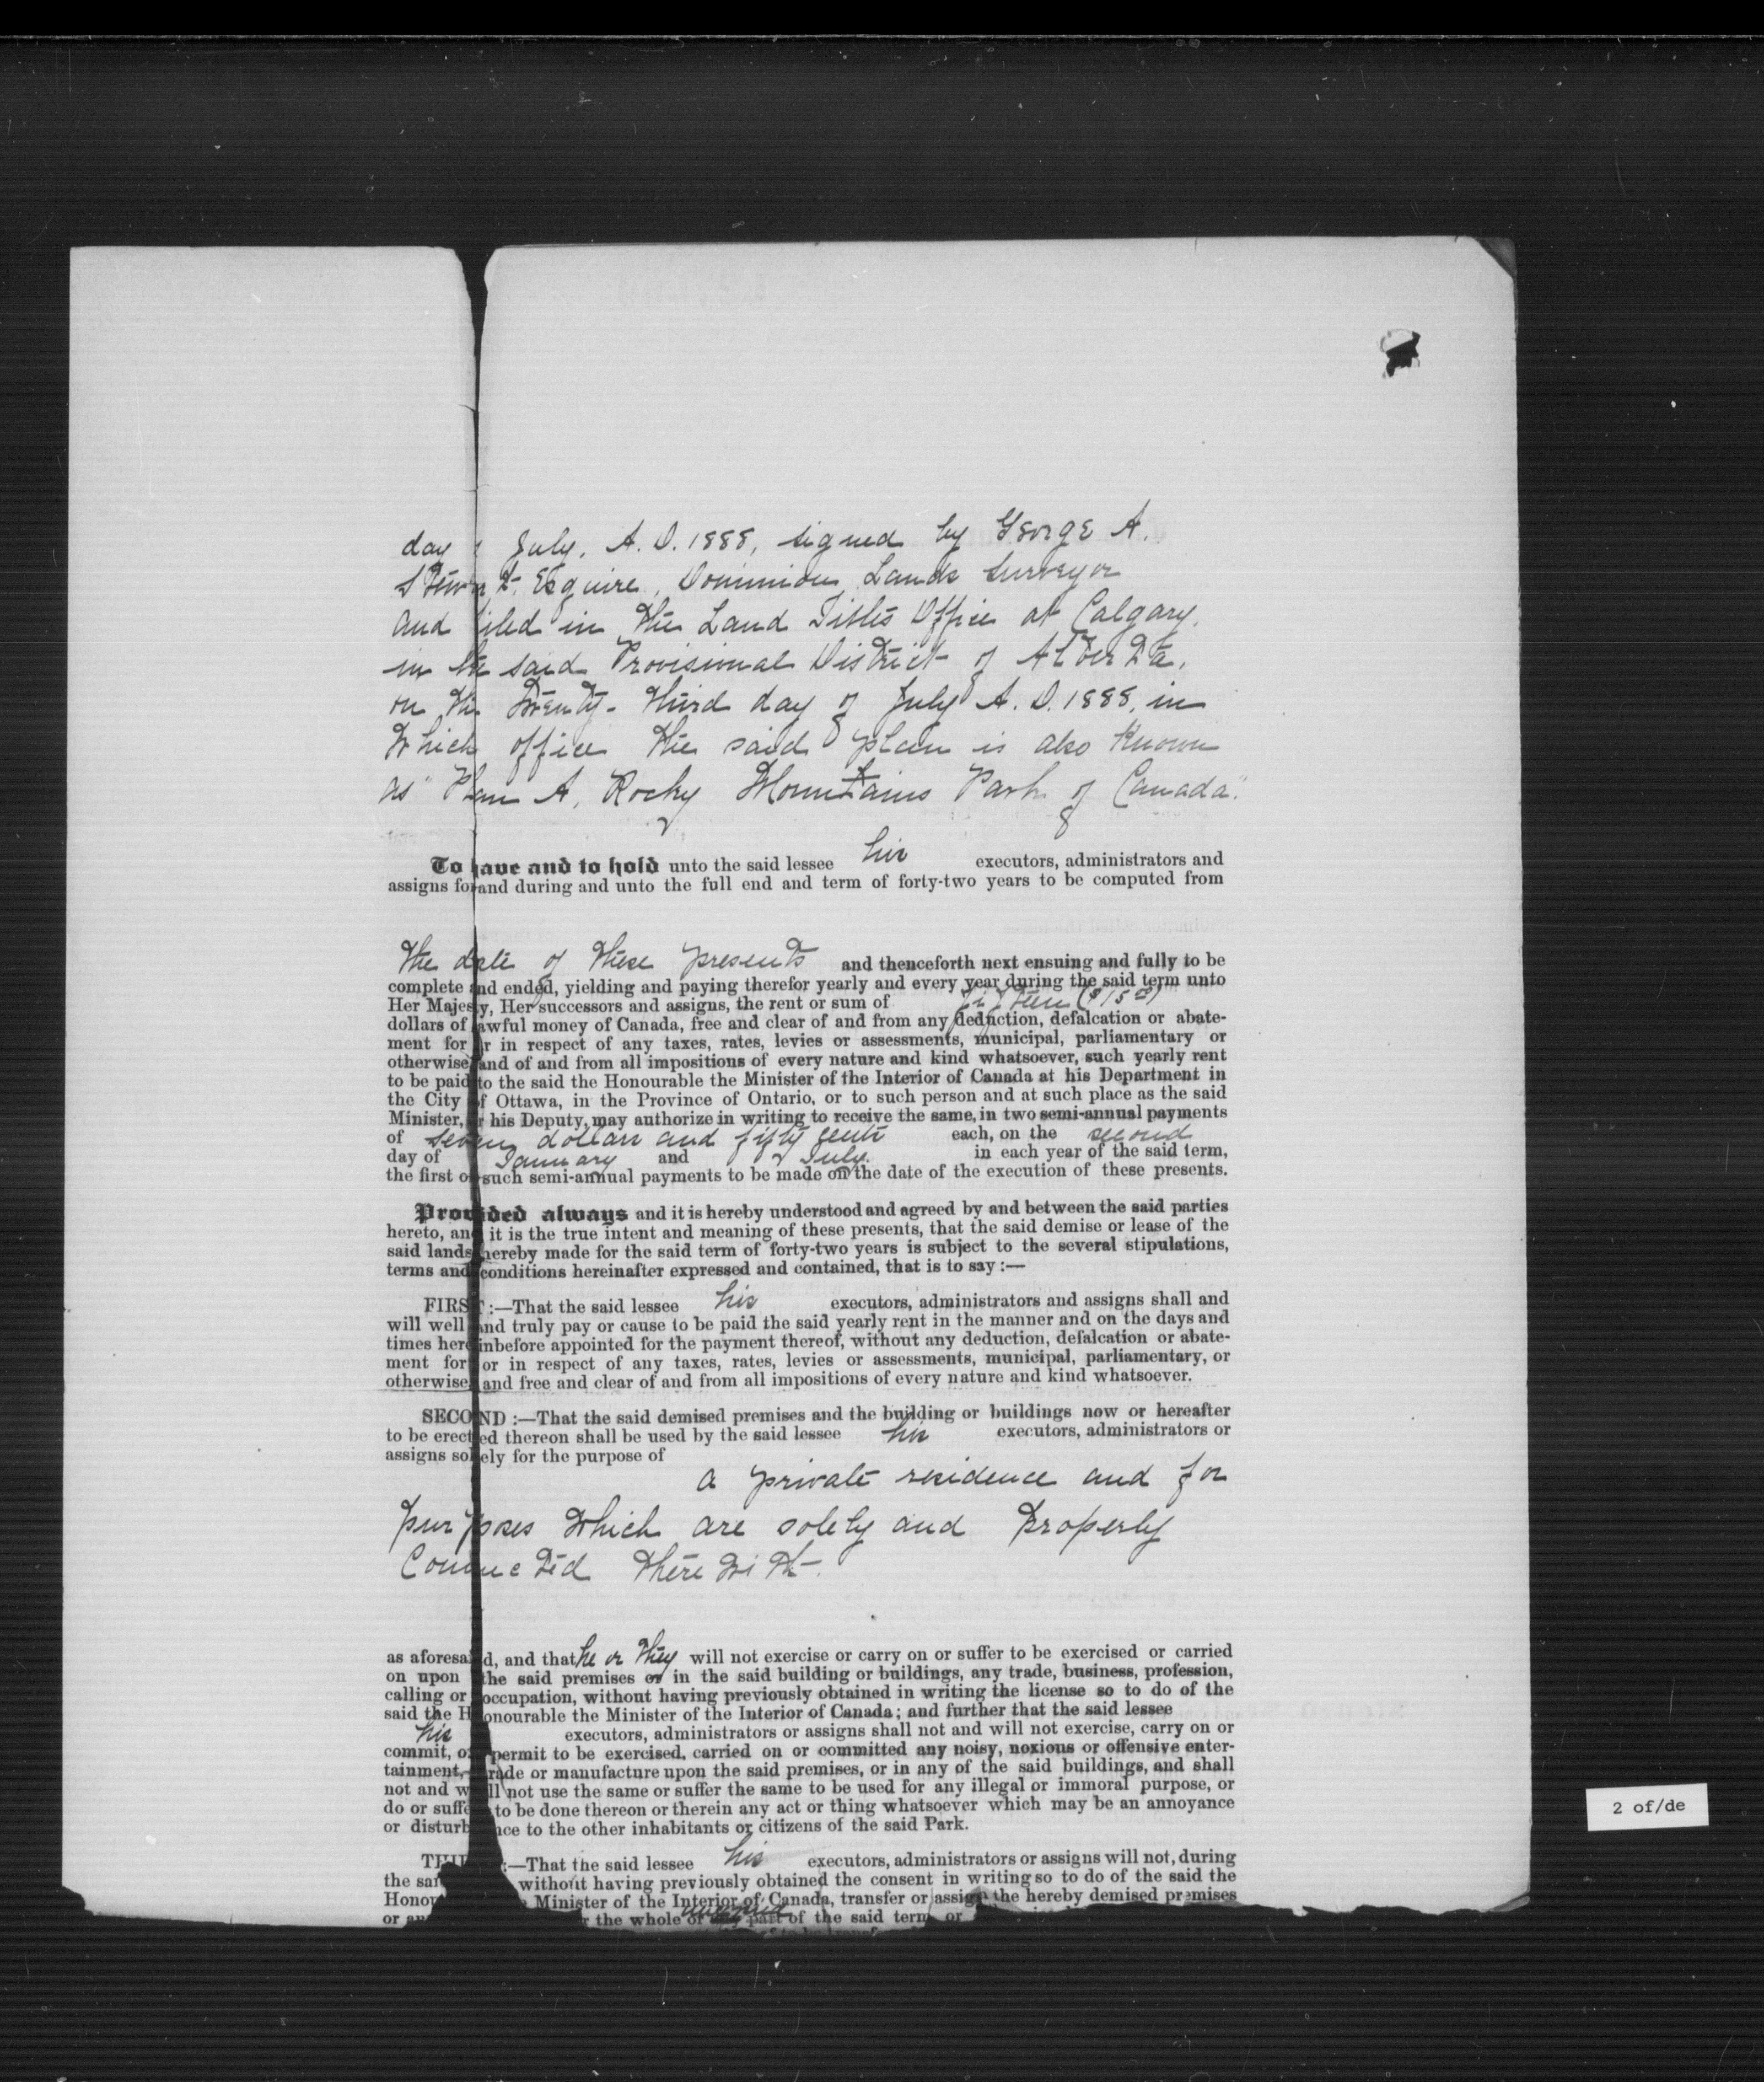 day July, A. D. 1888, signed by George A.
Stewart Esquire, Dominion Lands Surveyor
and filed in the Land Titles Office at Calgary,
in the said Provisional District of Alberta,
on the Twenty-third day of July A. D. 1888, in
which office the said plan is also known
as "Plan A, Rocky Mountains Park of Canada."
To have and to hold unto the said lessee his executors, administrators and
assigns for and during and unto the full end and term of forty-two years to be computed from
the date of these presents and thenceforth next ensuing and fully to be
complete and ended, yielding and paying therefor yearly and every year during the said term unto
Her Majesty, Her successors and assigns, the rent or sum of fifteen ($15.00)
dollars of lawful money of Canada, free and clear of and from any deduction, defalcation or abate-
ment for or in respect of any taxes, rates, levies or assessments, municipal, parliamentary or
otherwise, and of and from all impositions of every nature and kind whatsoever, such yearly rent
to be paid to the said the Honourable the Minister of the Interior of Canada at his Department in
the City of Ottawa, in the Province of Ontario, or to such person and at such place as the said
Minister, or his Deputy, may authorize in writing to receive the same, in two semi-annual payments
of seven dollars and fifty cents each, on the second
day of January and July. in each year of the said term,
the first of such semi-annual payments to be made on the date of the execution of these presents.
Provided always and it is hereby understood and agreed by and between the said parties
hereto, and it is the true intent and meaning of these presents, that the said demise or lease of the
said lands hereby made for the said term of forty-two years is subject to the several stipulations,
terms and conditions hereinafter expressed and contained, that is to say :—
FIRST :—That the said lessee his executors, administrators and assigns shall and
will well and truly pay or cause to be paid the said yearly rent in the manner and on the days and
times hereinbefore appointed for the payment thereof, without any deduction, defalcation or abate-
ment for or in respect of any taxes, rates, levies or assessments, municipal, parliamentary, or
otherwise, and free and clear of and from all impositions of every nature and kind whatsoever.
SECOND :—That the said demised premises and the building or buildings now or hereafter
to be erected thereon shall be used by the said lessee his executors, administrators or
assigns solely for the purpose of
a private residence and for
purposes which are solely and properly
connected therewith.
as aforesaid, and that he or they will not exercise or carry on or suffer to be exercised or carried
on upon the said premises or in the said building or buildings, any trade, business, profession,
calling or occupation, without having previously obtained in writing the license so to do of the
said the Honourable the Minister of the Interior of Canada ; and further that the said lessee
his executors, administrators or assigns shall not and will not exercise, carry on or
commit, or permit to be exercised, carried on or committed any noisy, noxious or offensive enter-
tainment, trade or manufacture upon the said premises, or in any of the said buildings, and shall
not and will not use the same or suffer the same to be used for any illegal or immoral purpose, or
do or suffer to be done thereon or therein any act or thing whatsoever which may be an annoyance
or disturbance to the other inhabitants or citizens of the said Park.
THIRD :—That the said lessee his executors, administrators or assigns will not, during
the said without having previously obtained the consent in writing so to do of the said the
Honourable the Minister of the Interior of Canada, transfer or assign the hereby demised premises
or any the whole or part of the said term or
2 of/de